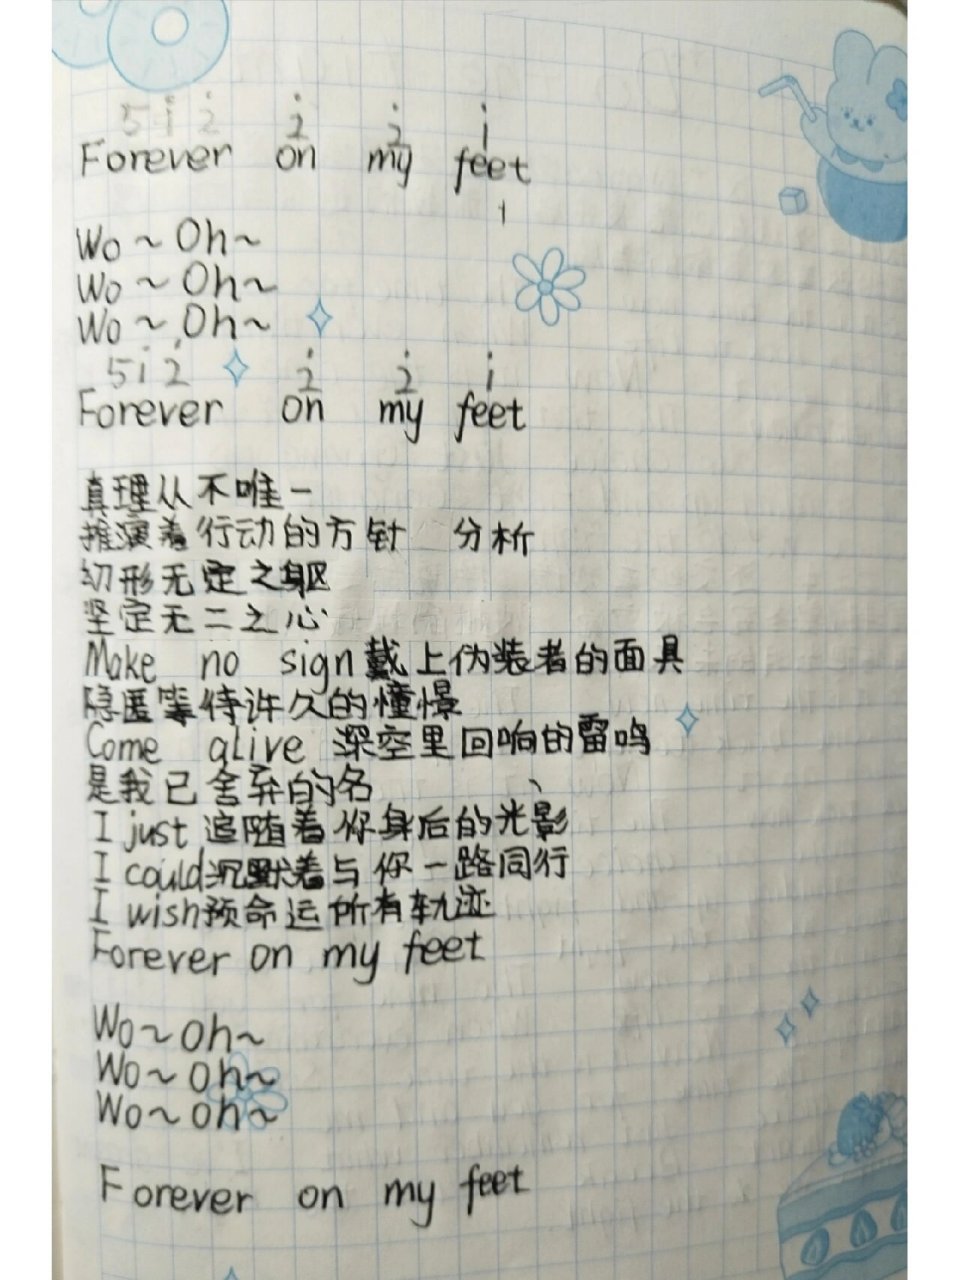 5 i 2̇ 2̇ 2̇ i
Forever on my feet
Wo~Oh~
Wo~Oh~
Wo~Oh~
5 i 2̇ 2̇ 2̇ i
Forever on my feet
真理从不唯一
推演着行动的方针 分析
幻形无定之躯
坚定无二之心
Make no sign戴上伪装者的面具
隐匿等待许久的憧憬
Come alive 深空里回响的雷鸣
是我已舍弃的名
I just 追随着你身后的光影
I could沉默着与你一路同行
I wish预命运所有轨迹
Forever on my feet
Wo~oh~
Wo~oh~
Wo~oh~
Forever on my feet